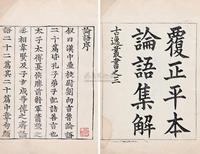 覆正平本
論語集解
古逸叢書之三
論語序
叙曰漢中壘校尉劉向言魯論語
二十篇皆孔子弟子記諸善言也
太子太傅夏侯勝前將軍蕭望之
丞相韋賢及子玄成等傳之齊論
語二十二篇其二十篇中章句頗